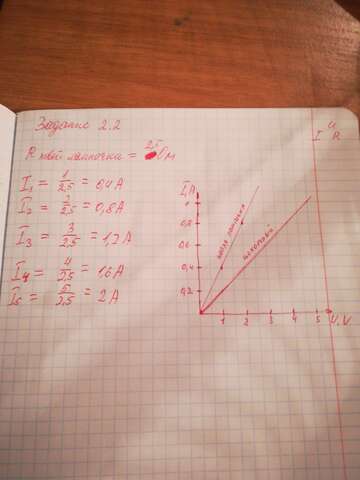 Задание 2.2
U
I R
R новой лампочки = 2,5 Ом
I₁ = 1/2,5 = 0,4 A
I₂ = 2/2,5 = 0,8 A
I₃ = 3/2,5 = 1,2 A
I₄ = 4/2,5 = 1,6 A
I₅ = 5/2,5 = 2 A
I, A
1
0,8
0,6
0,4
0,2
новая лампочка
1 2 3 4 5 U, V